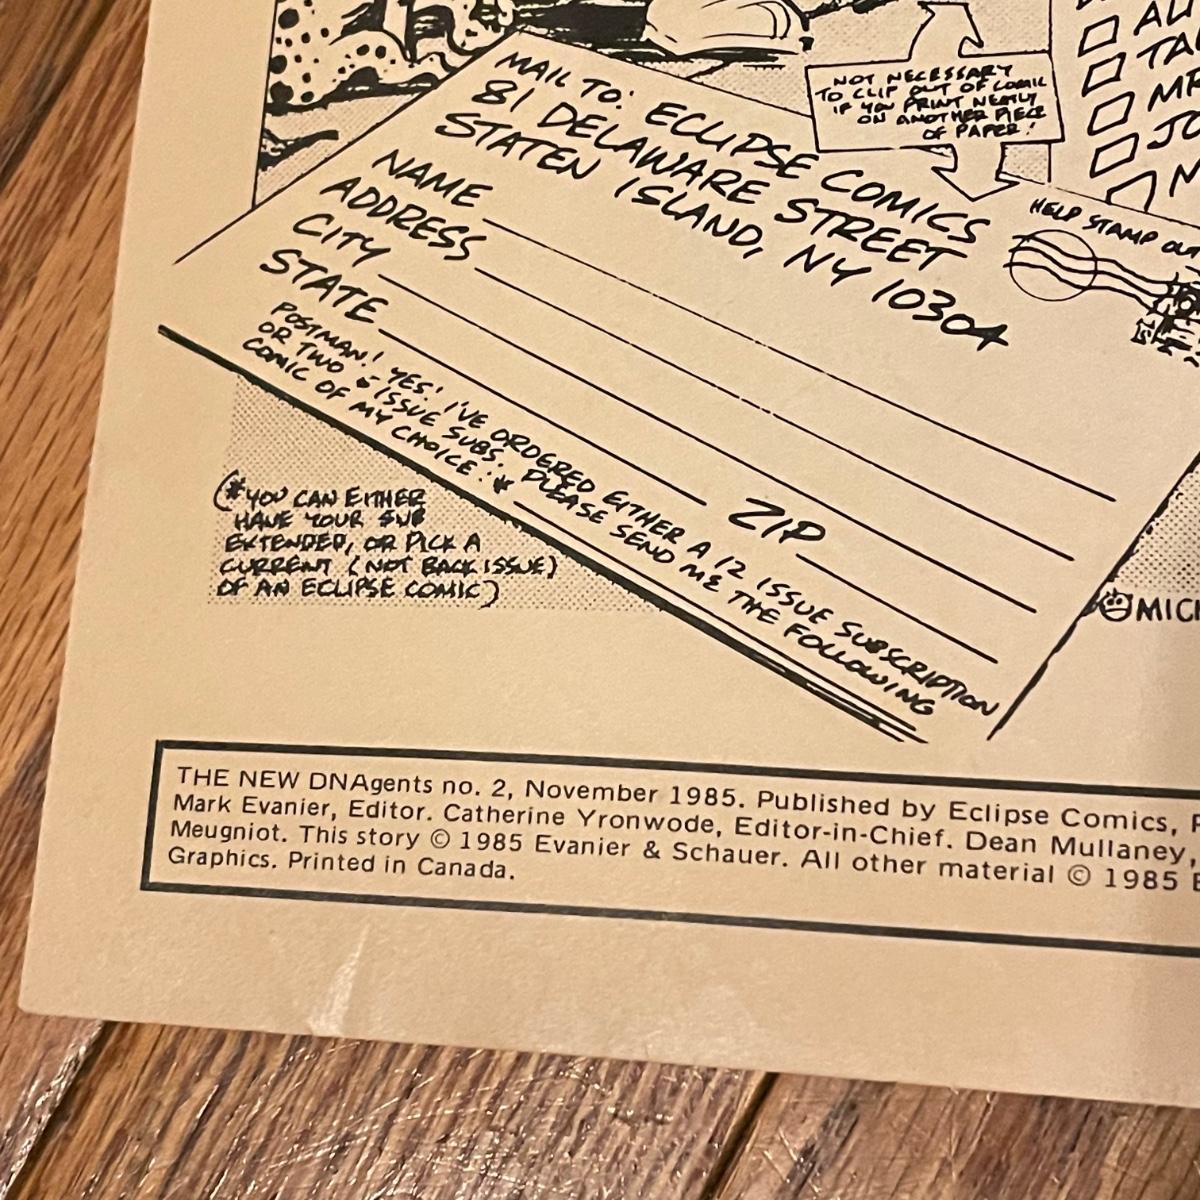 NOT NECESSARY
TO CLIP OUT OF COMIC
IF YOU PRINT NEATLY
ON ANOTHER PIECE
OF PAPER!
MAIL TO: ECLIPSE COMICS
81 DELAWARE STREET
STATEN ISLAND, NY 10304
HELP STAMP OUT
NAME
ADDRESS
CITY
STATE
ZIP
POSTMAN! YES! I'VE ORDERED EITHER A 12 ISSUE SUBSCRIPTION
OR TWO 6-ISSUE SUBS. PLEASE SEND ME THE FOLLOWING
COMIC OF MY CHOICE:*
(*YOU CAN EITHER
HAVE YOUR SUB
EXTENDED, OR PICK A
CURRENT (NOT BACK ISSUE)
OF AN ECLIPSE COMIC)
THE NEW DNAgents no. 2, November 1985. Published by Eclipse Comics,
Mark Evanier, Editor. Catherine Yronwode, Editor-in-Chief. Dean Mullaney,
Meugniot. This story © 1985 Evanier & Schauer. All other material © 1985
Graphics. Printed in Canada.